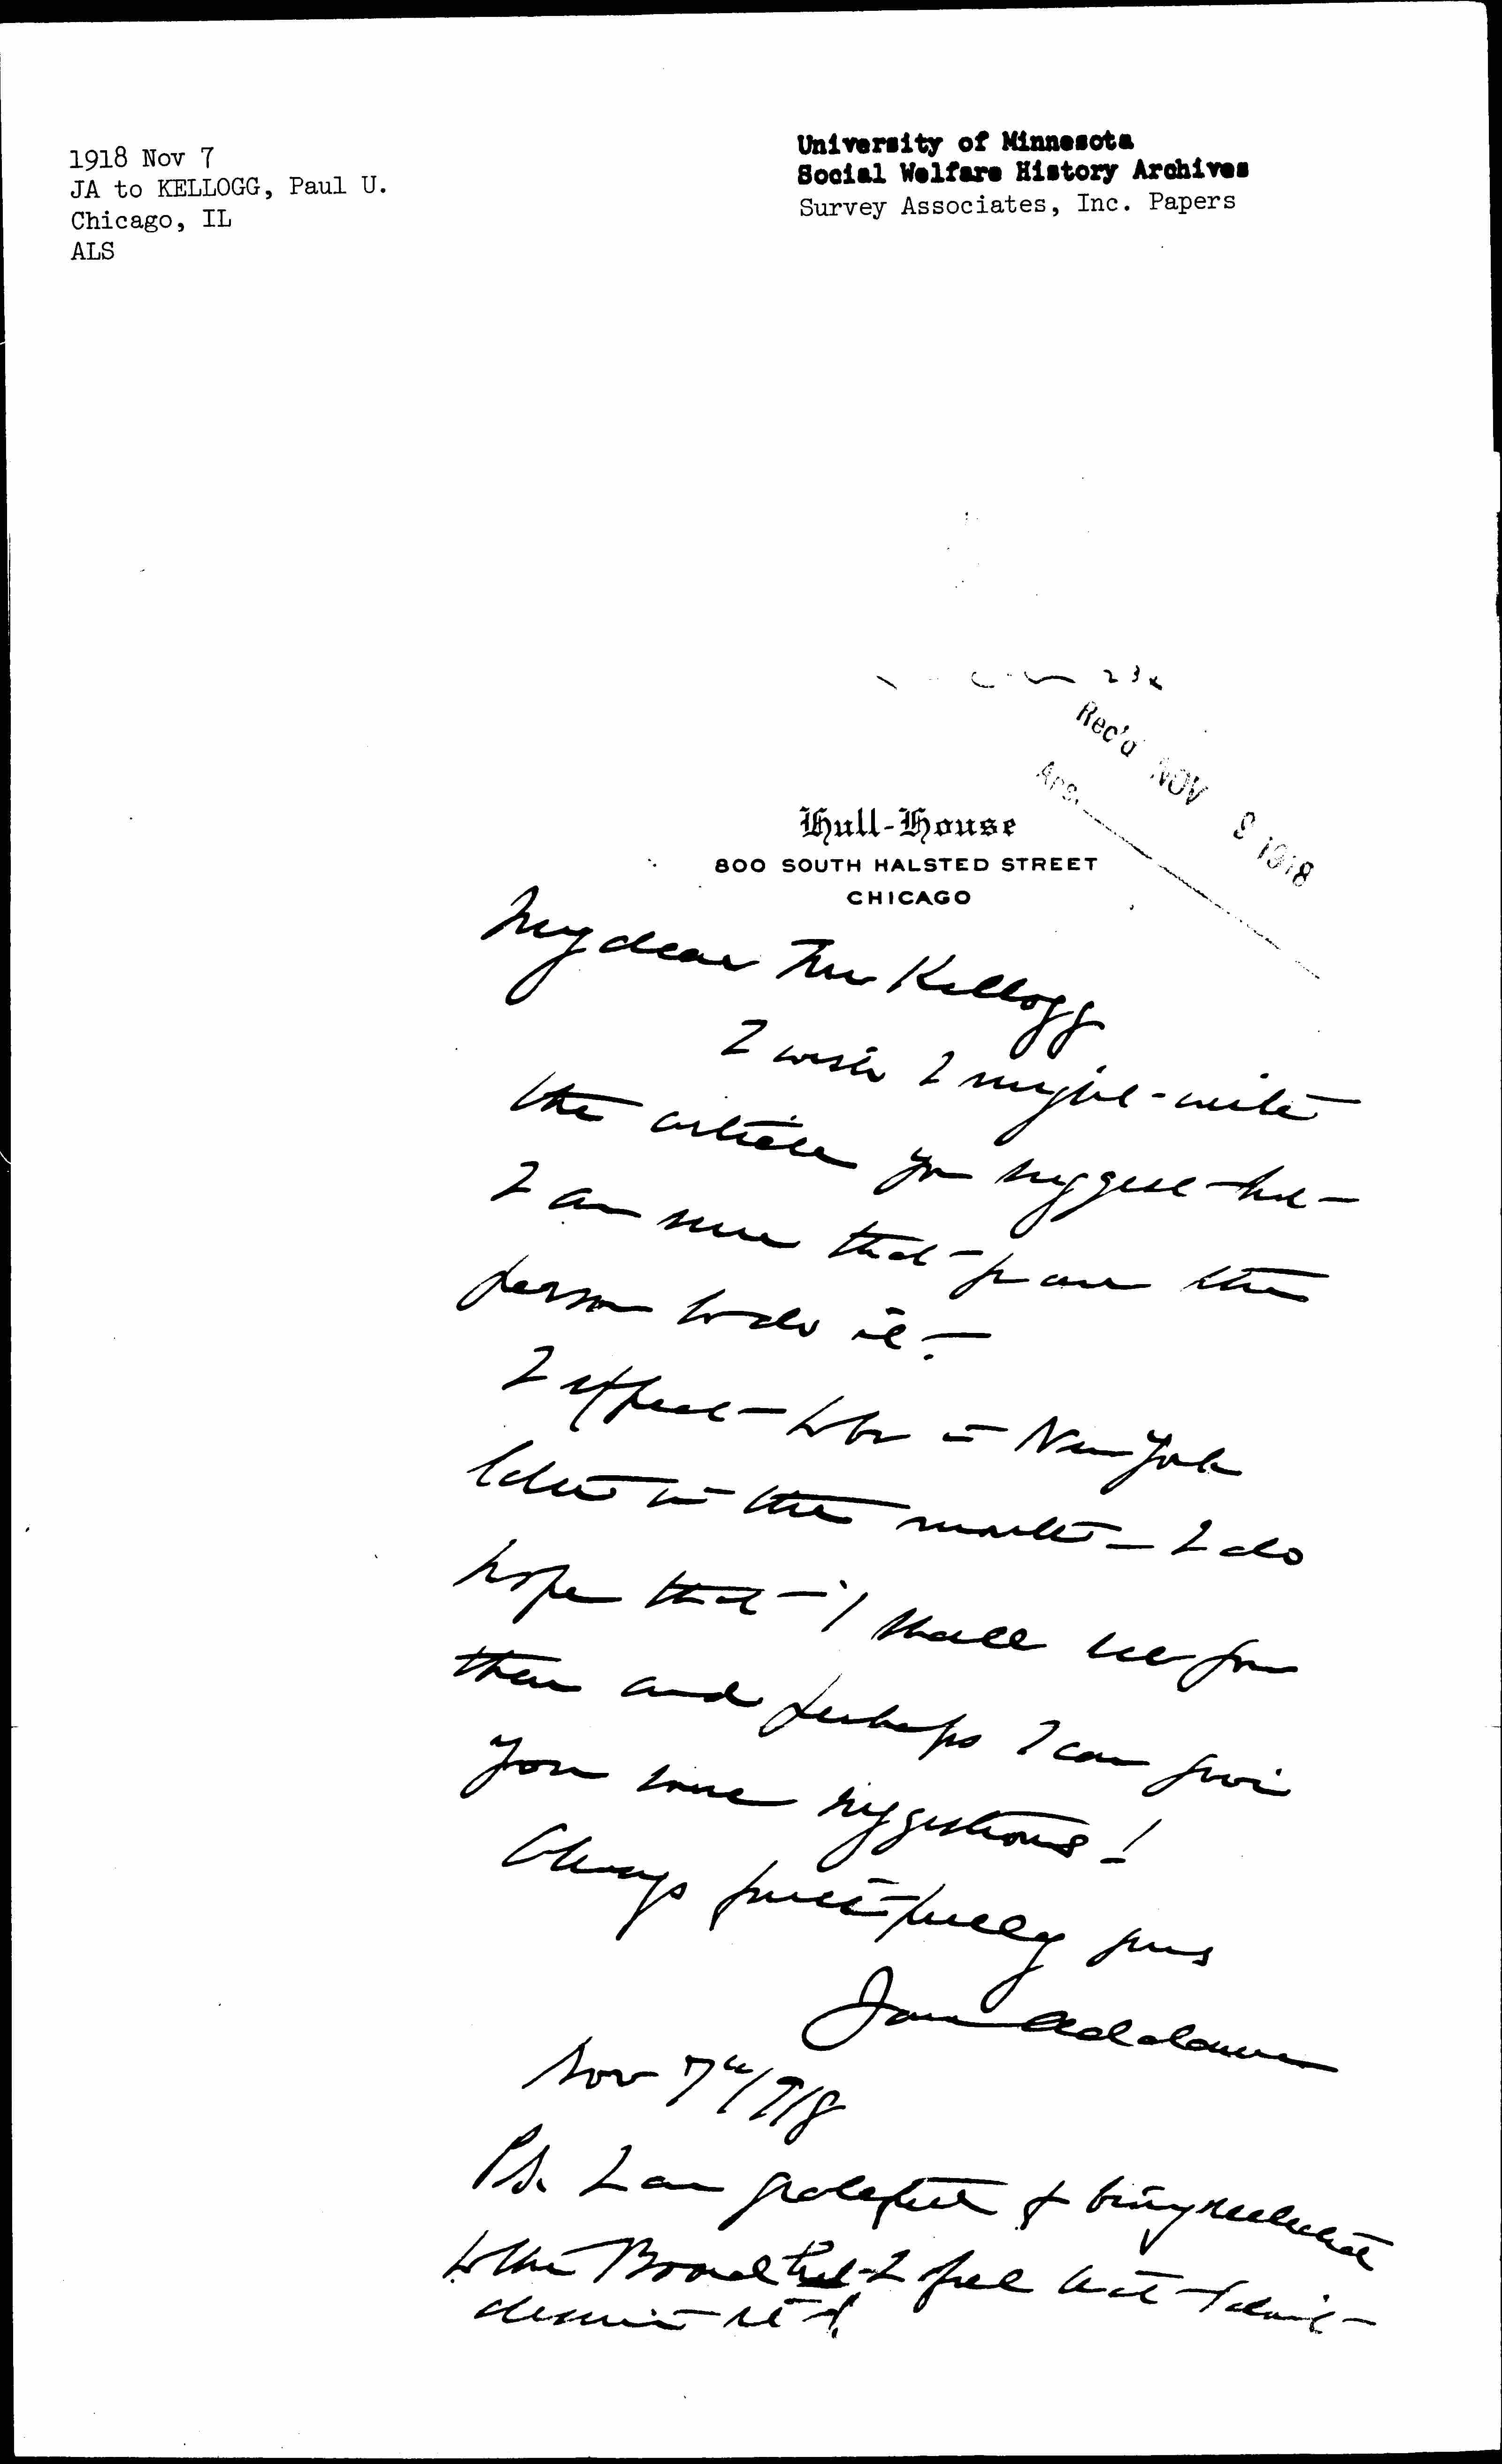 1918 Nov 7
JA to KELLOGG, Paul U.
Chicago, IL
ALS
University of Minnesota
Social Welfare History Archives
Survey Associates, Inc. Papers
Rec'd NOV 9 1918
Ans.
Hull-House
800 SOUTH HALSTED STREET
CHICAGO
My dear Mr Kellogg
I wish I might write
the article you suggest but
I am sure that you are the
person to do it.
I expect to be in New York
later in the month – I do
hope that I shall see you
then and perhaps I can give
you some suggestions!
Always faithfully yours
Jane Addams
Nov 7" / 918
P.S. I am grateful for being reelected
to the Board that I feel I don't
deserve it!